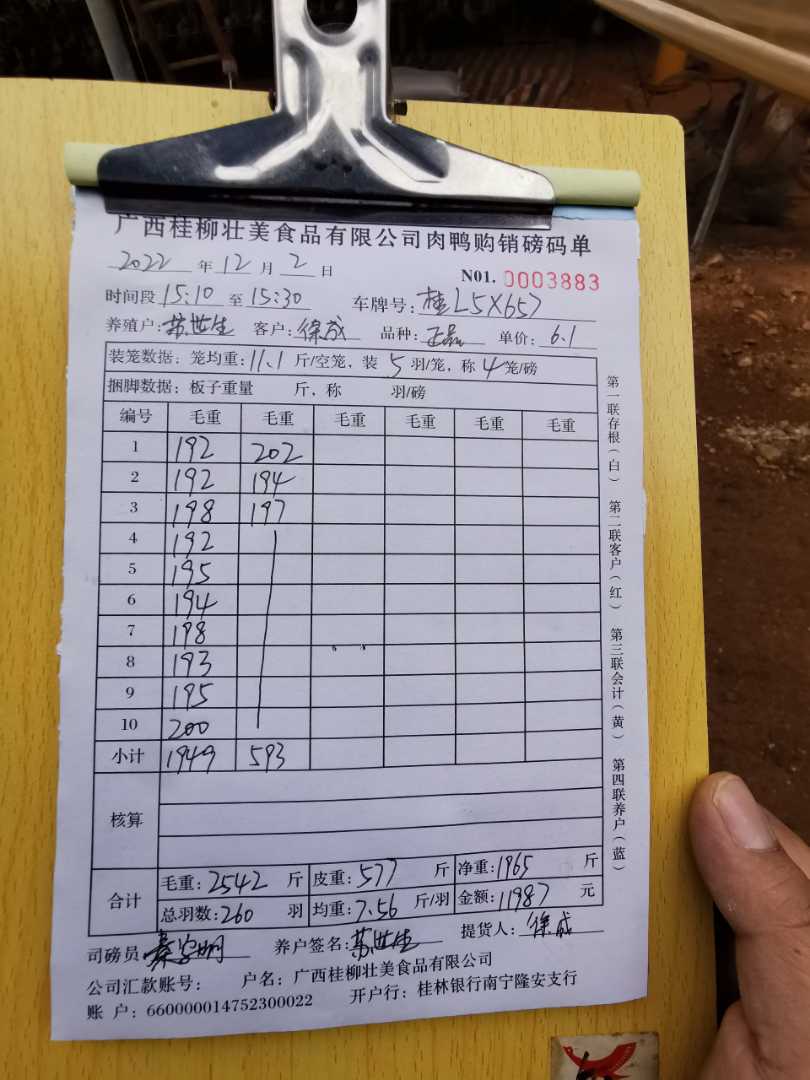 广西桂柳壮美食品有限公司肉鸭购销磅码单
2022 年 12 月 2 日
N01. 0003883
时间段 15:10 至 15:30 车牌号: 桂L5X657
养殖户: 苏世生 客户: 徐成 品种: 正品 单价: 6.1
装笼数据: 笼均重: 11.1 斤/空笼, 装 5 羽/笼, 称 4 笼/磅
捆脚数据: 板子重量 斤, 称 羽/磅
编号 毛重 毛重 毛重 毛重 毛重 毛重
1 192 202
2 192 194
3 198 197
4 192
5 195
6 194
7 198
8 193
9 195
10 200
小计 1949 593
核算
合计
毛重: 2542 斤 皮重: 577 斤 净重: 1965 斤
总羽数: 260 羽 均重: 7.56 斤/羽 金额: 11987 元
司磅员 养户签名: 苏世生 提货人: 徐成
公司汇款账号: 户名: 广西桂柳壮美食品有限公司
账 户: 660000014752300022 开户行: 桂林银行南宁隆安支行
第一联存根(白) 第二联客户(红) 第三联会计(黄) 第四联养户(蓝)